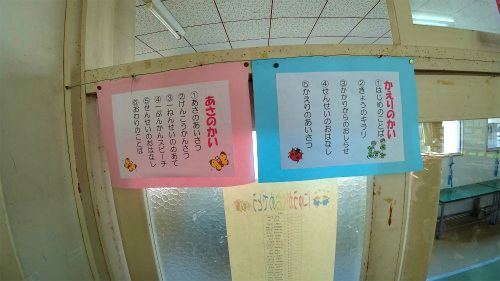 あさのかい
①あさのあいさつ
②けんこうかんさつ
③一ねんせいのめあて
④一ぷんかんスピーチ
⑤せんせいのおはなし
⑥おわりのことば
かえりのかい
①はじめのことば
②きょうのキラリ
③かかりからのおしらせ
④せんせいのおはなし
⑤かえりのあいさつ